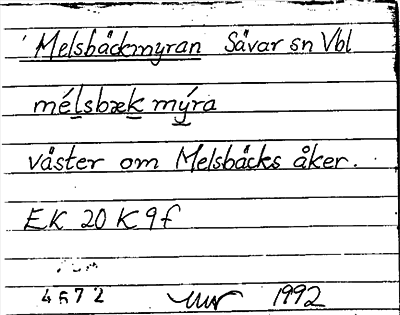 Melsbäckmyran Sävar sn Vbl
mélsbækmýra
väster om Melsbäcks åker.
EK 20 K 9 f
4672 1992